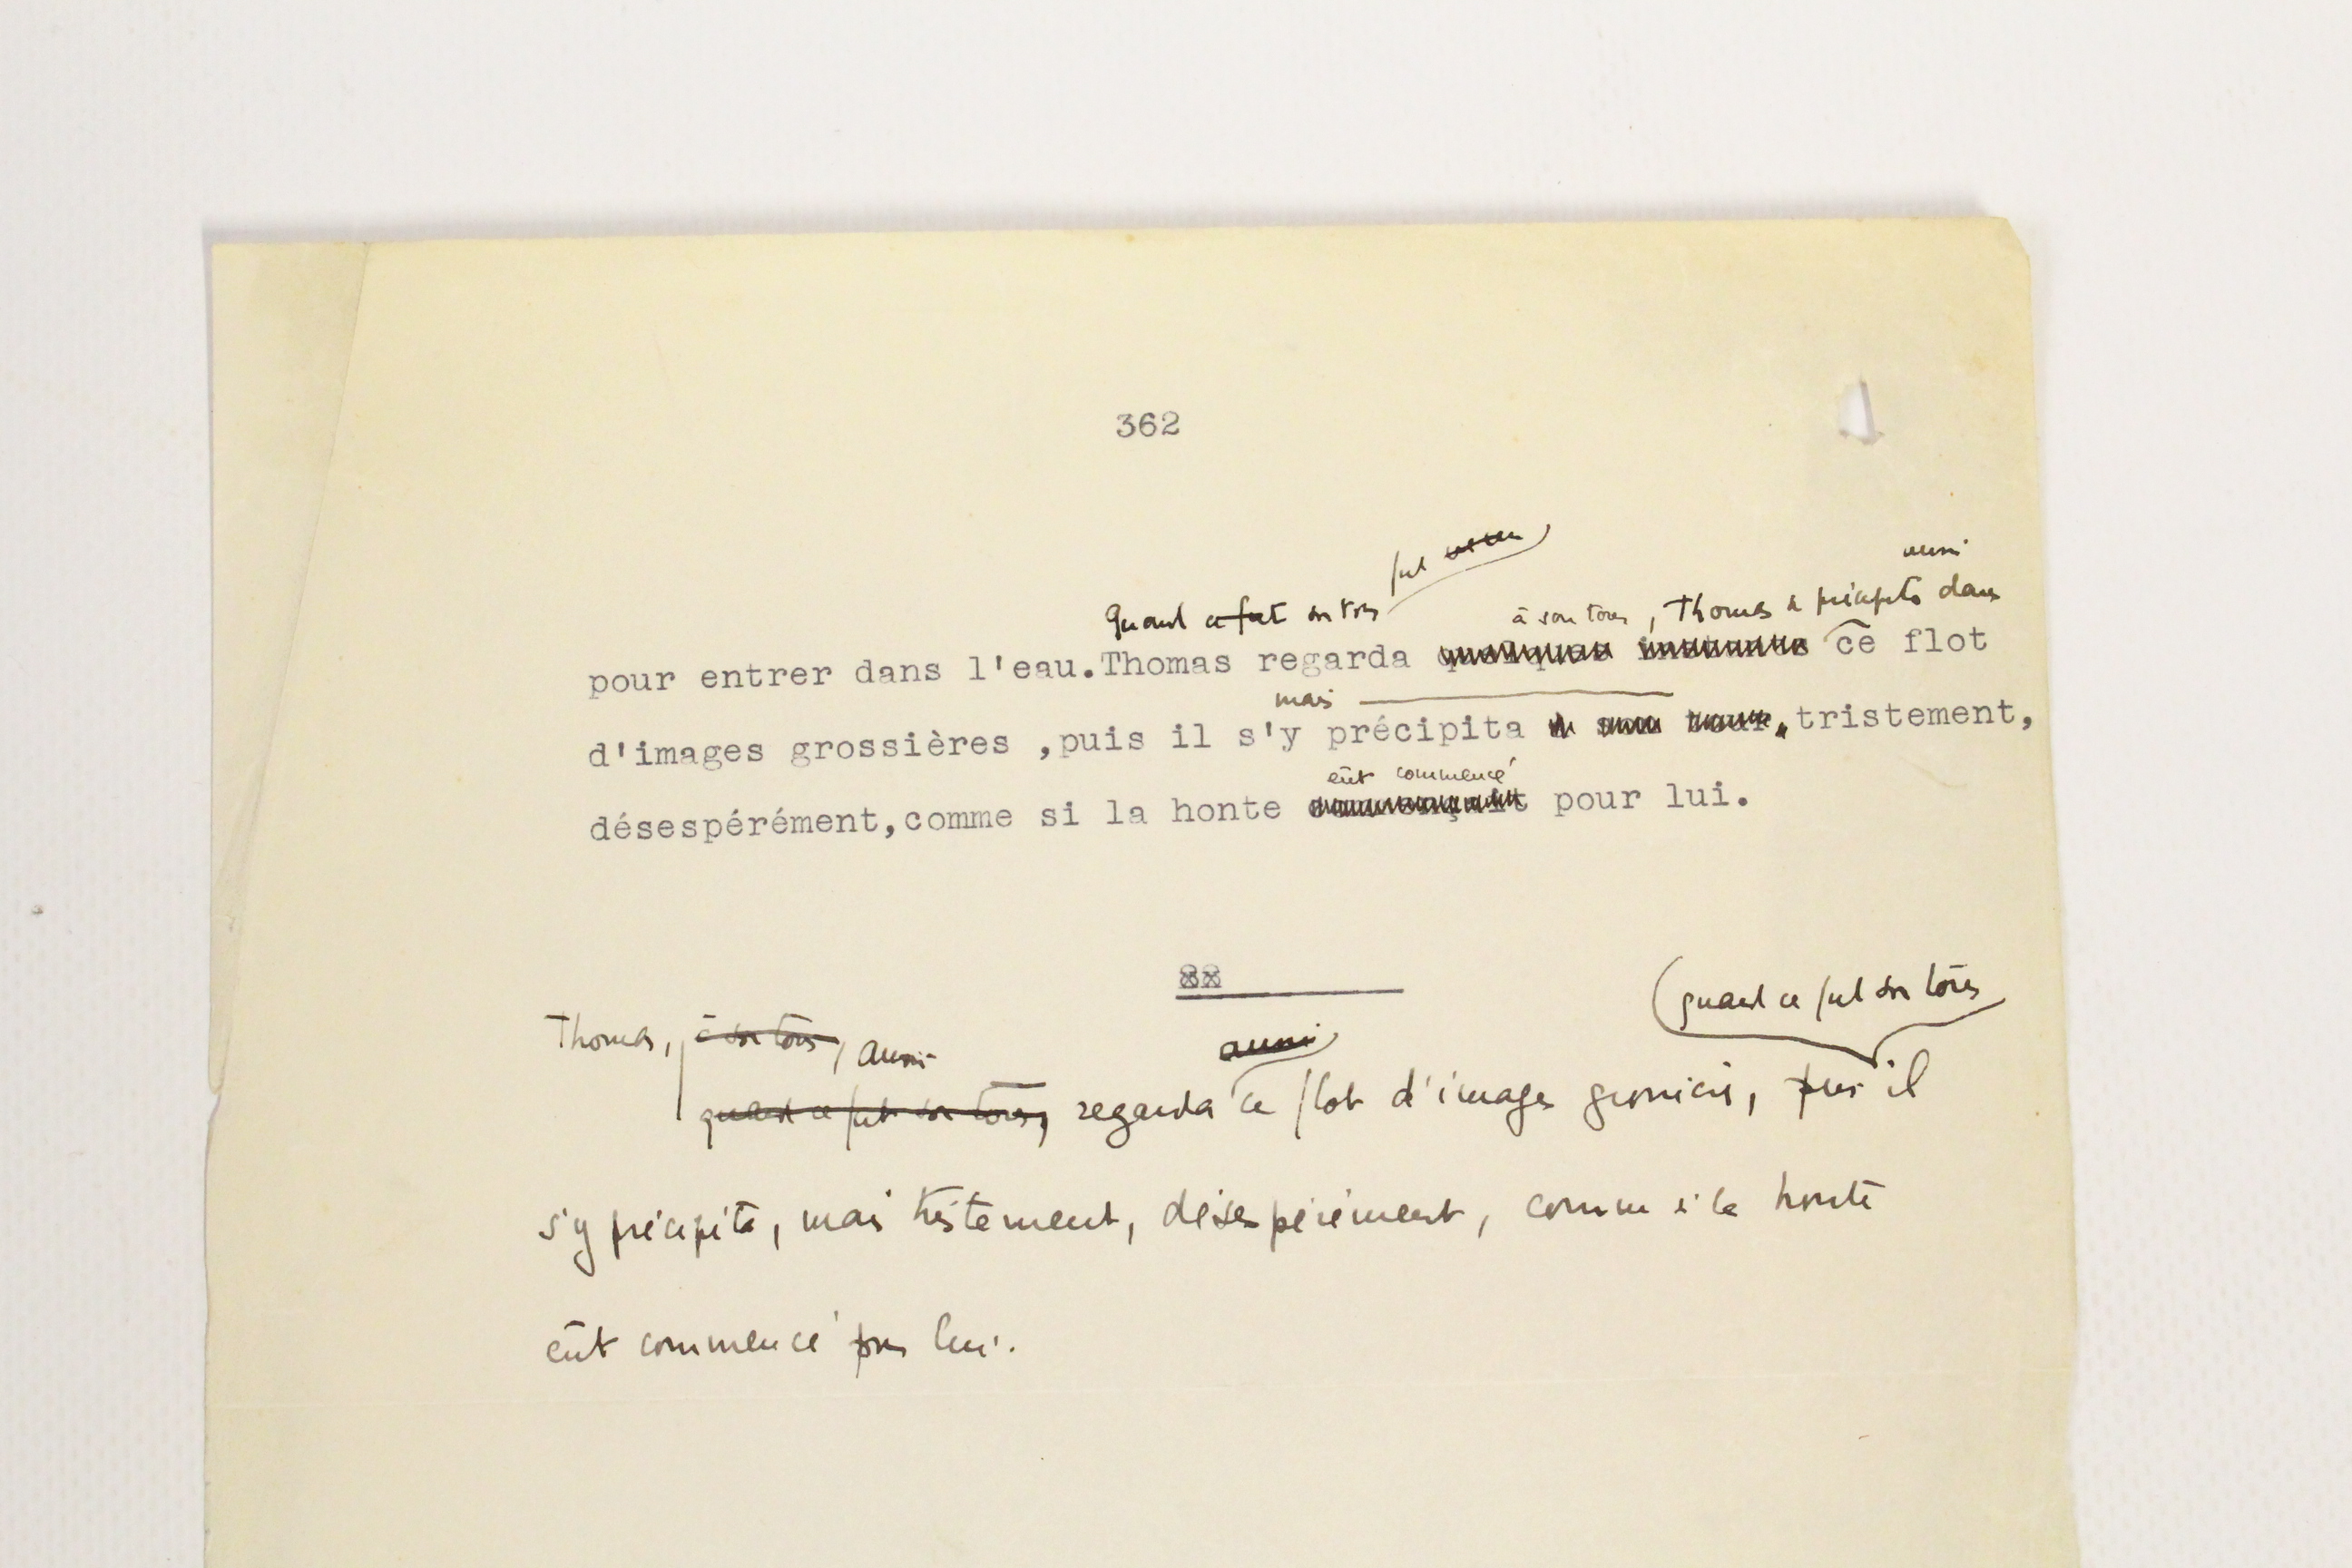 362
fut
aussi
Quand ce fut son tour
à son tour, Thomas se précipita dans
pour entrer dans l'eau.Thomas regarda quelques instants ce flot
mais
d'images grossières ,puis il s'y précipita à son tour, tristement,
eût commencé
désespérément,comme si la honte commençait pour lui.
quand ce fut son tour
Thomas, à son tour, aussi
aussi
quand ce fut son tour, regarda ce flot d'images grossières, puis il
s'y précipita, mais tristement, désespérément, comme si la honte
eût commencé pour lui.